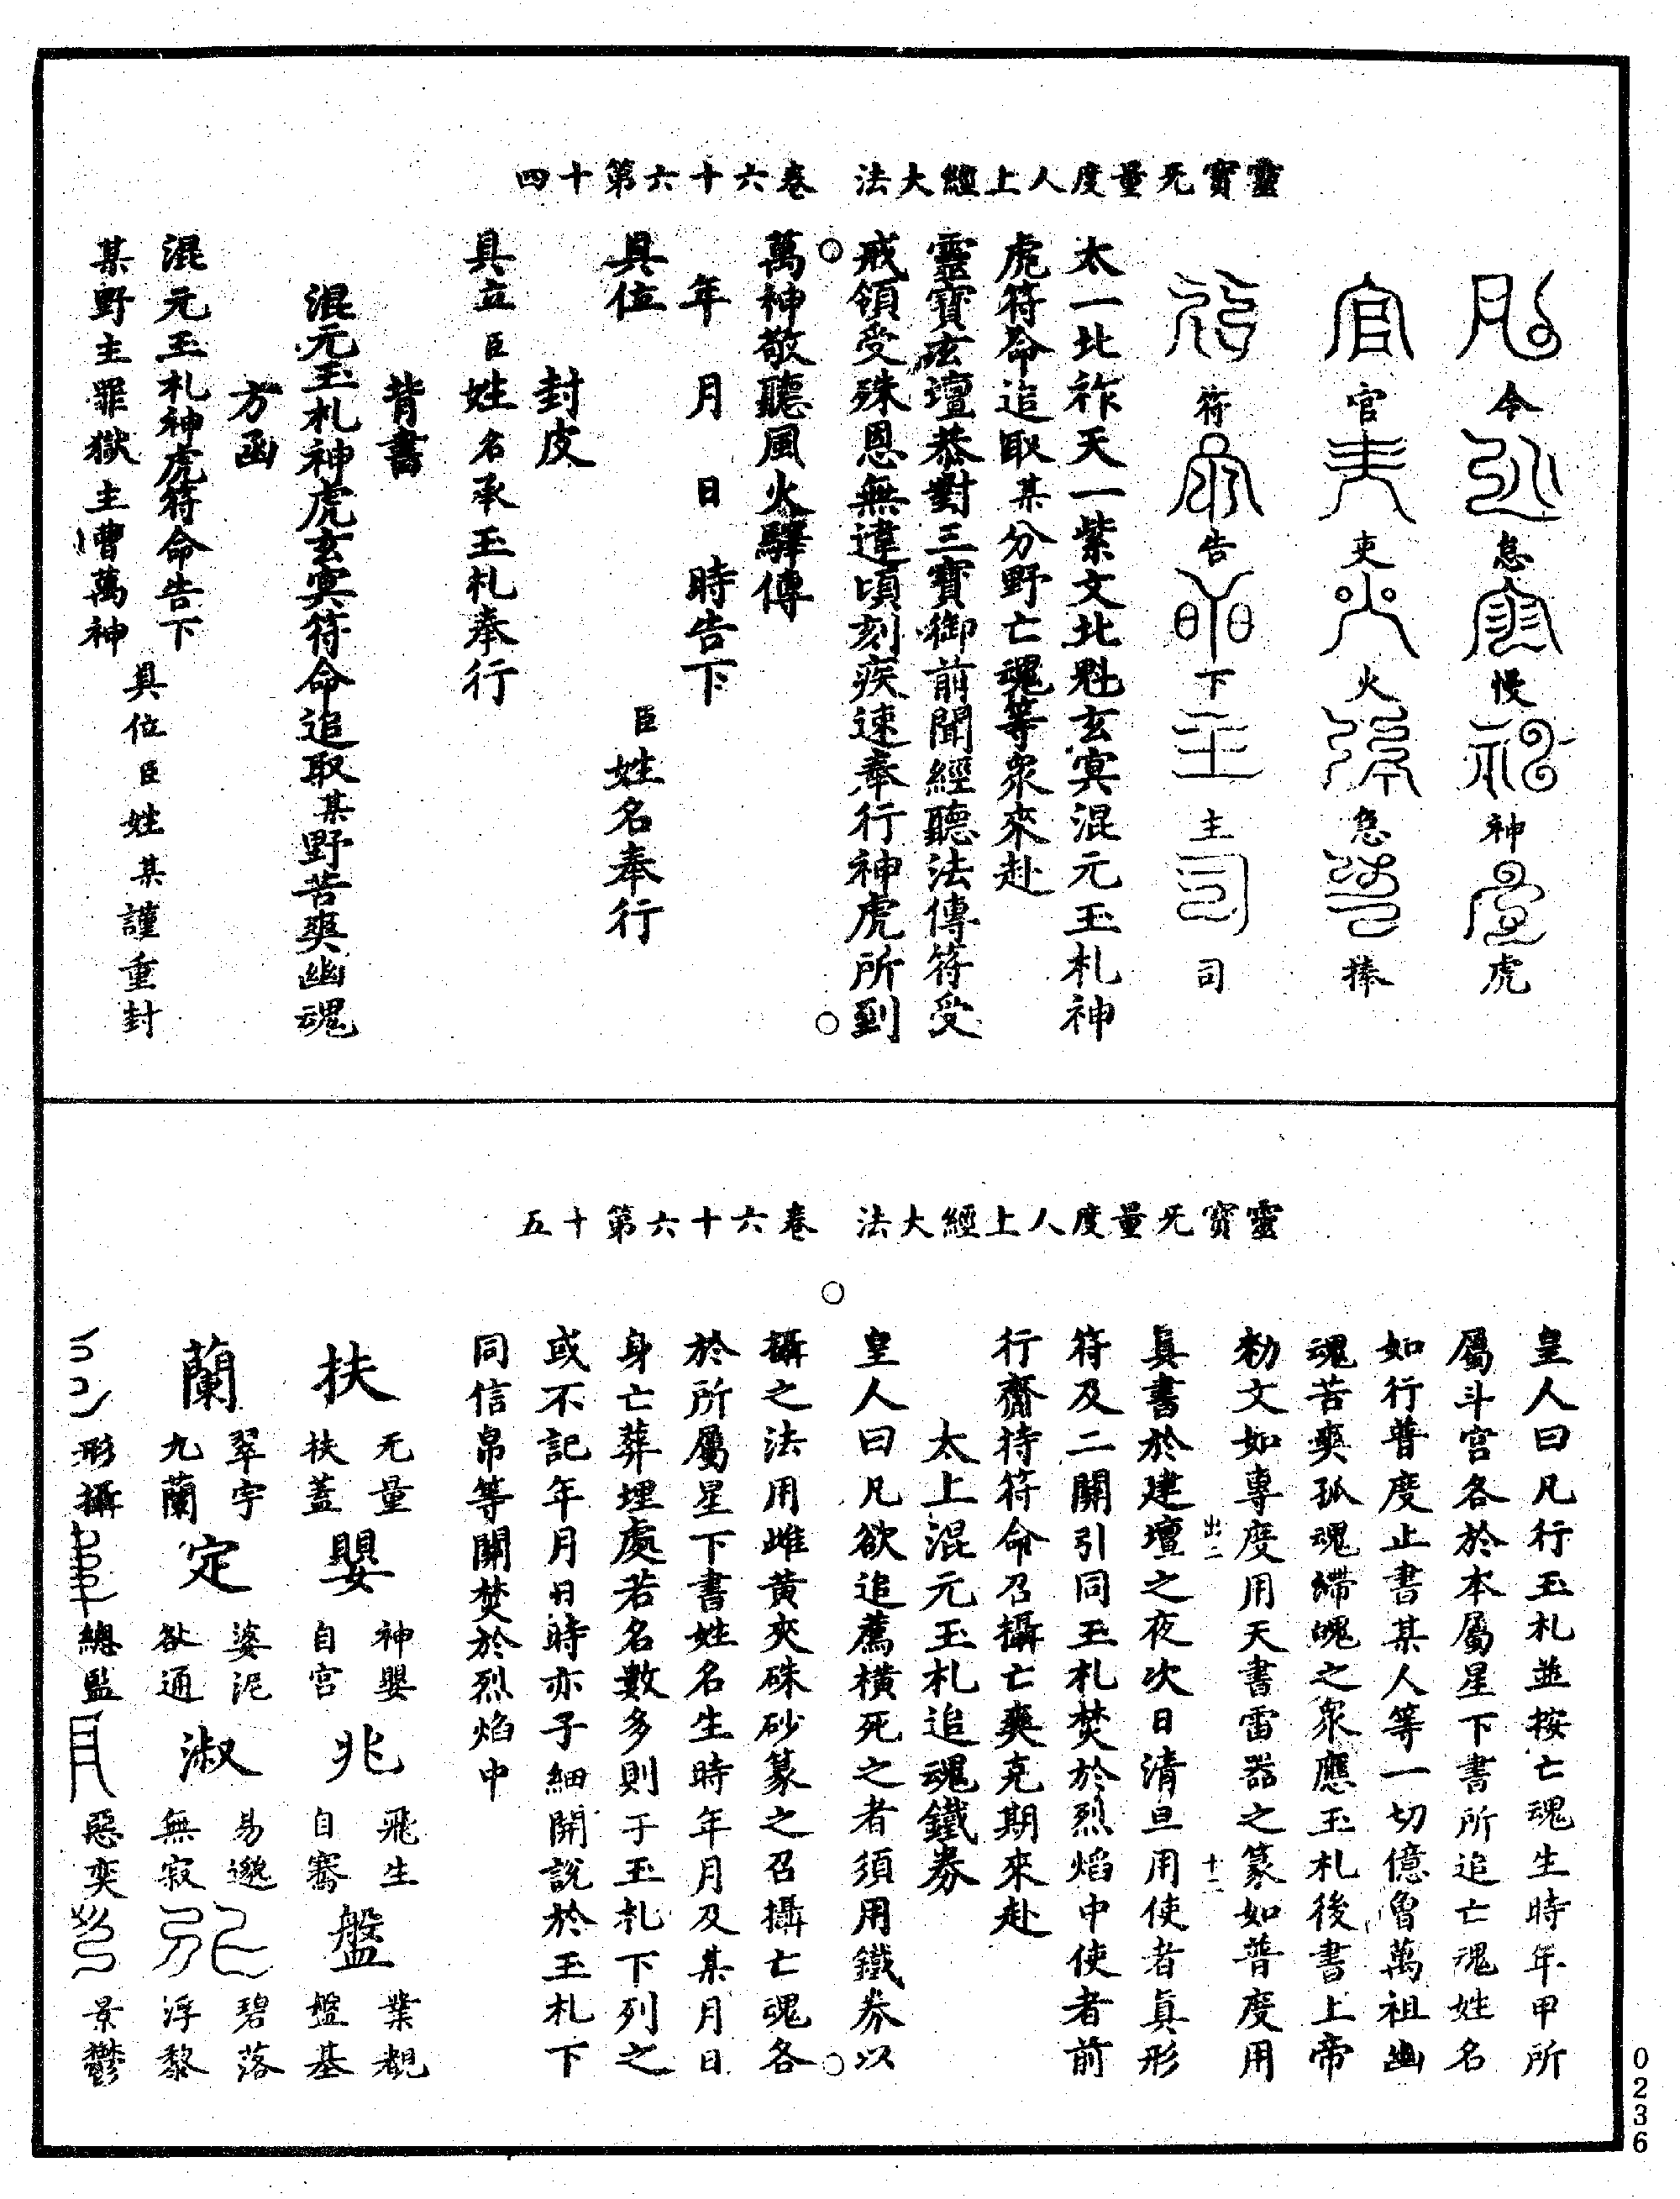 靈寶无量度人上經大法　卷六十六第十四
令急慢神虎
官吏火急捧
符告下主司
太一北祚天一紫文北魁玄冥混元玉札神
虎符命追取某分野亡魂等衆來赴
靈寶玄壇恭對三寶御前聞經聽法傳符受
戒領受殊恩無違頃刻疾速奉行神虎所到
萬神敬聽風火驛傳
年　月　日　時告下
具位　臣姓名奉行
封皮
具立臣姓名承玉札奉行
背書
混元玉札神虎玄冥符命追取某野苦爽幽魂
方函
混元玉札神虎符命告下
某野主罪獄主曹萬神
具位臣姓某謹重封
靈寶无量度人上經大法　卷六十六第十五
皇人曰凡行玉札並按亡魂生時年甲所
屬斗宮各於本屬星下書所追亡魂姓名
如行普度止書某人等一切億曾萬祖幽
魂苦爽孤魂滯魄之衆應玉札後書上帝
勑文如專度用天書雷器之篆如普度用
出二　十二
眞書於建壇之夜次日清旦用使者眞形
符及二關引同玉札焚於烈焰中使者前
行齋持符命召攝亡爽克期來赴
太上混元玉札追魂鐵券
皇人曰凡欲追薦橫死之者須用鐵券以
攝之法用雌黃夾硃砂篆之召攝亡魂各
於所屬星下書姓名生時年月及某月日
身亡葬埋處若名數多則于玉札下列之
或不記年月日時亦子細開說於玉札下
同信帛等關焚於烈焰中
扶　无量扶蓋　嬰　神嬰自宮　兆　飛生自騫　盤　業覩盤基
蘭　翠宇九蘭　定　婆泥咎通　淑　易邈無寂　碧落浮黎
形攝　總監　惡奕　景鬱
0236